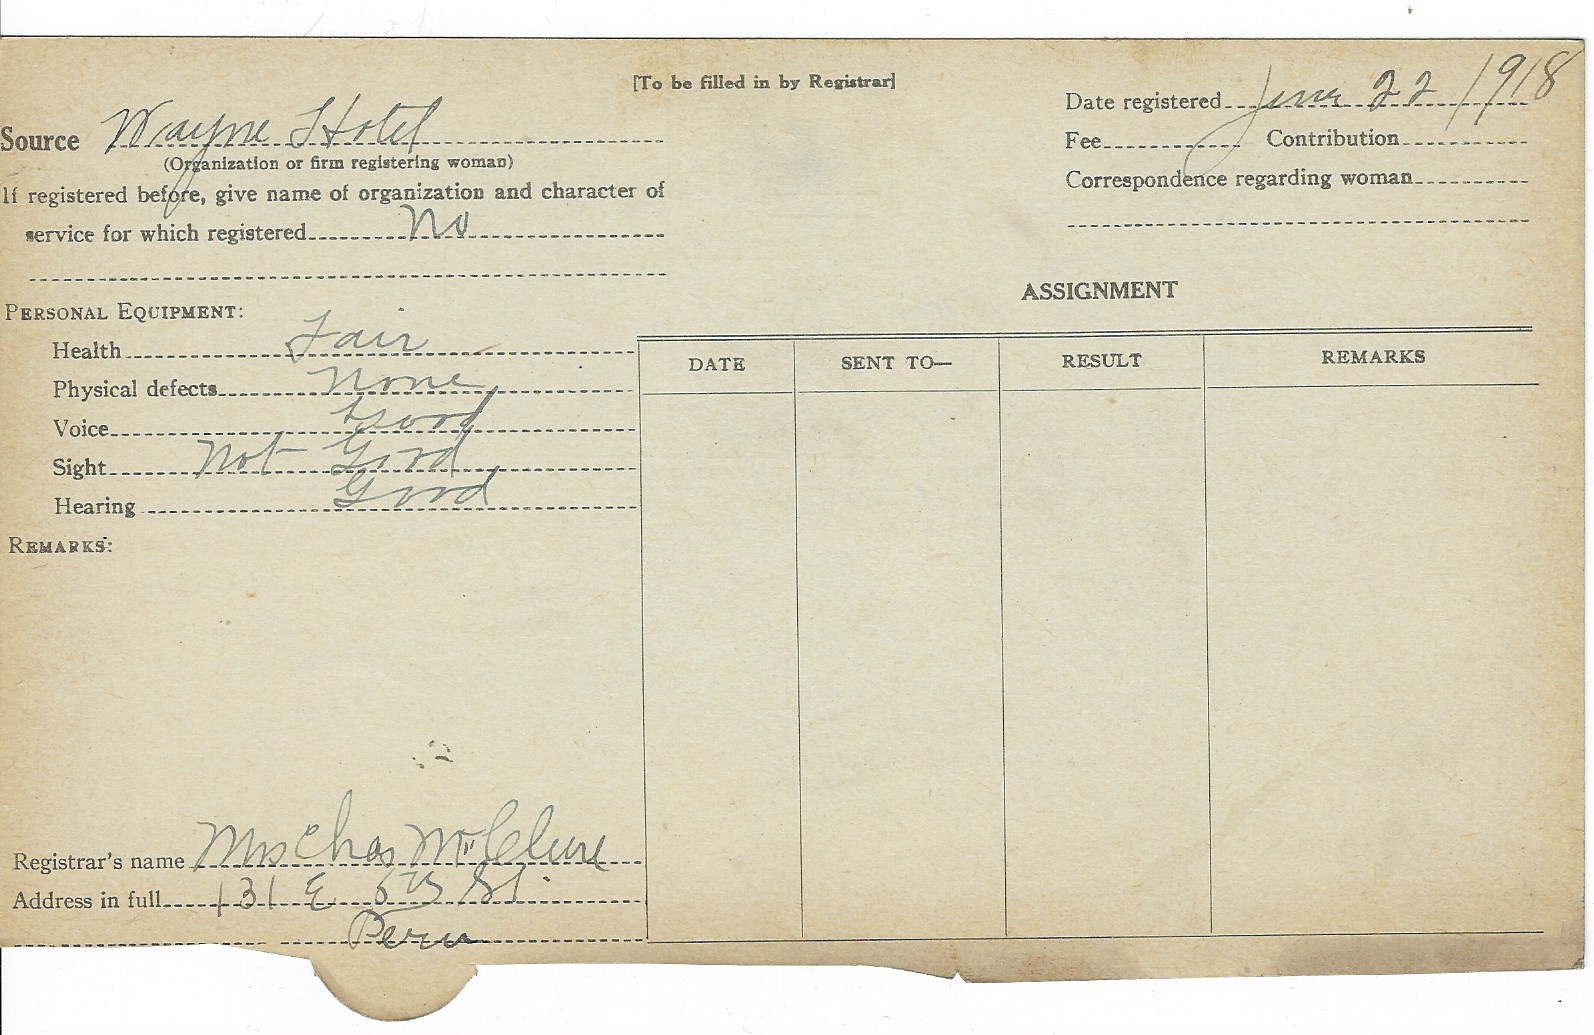 [To be filled in by Registrar]
Source Wayne Hotel
(Organization or firm registering woman)
If registered before, give name of organization and character of
service for which registered No
Date registered June 22 1918
Fee Contribution
Correspondence regarding woman
PERSONAL EQUIPMENT:
Health Fair
Physical defects None
Voice Good
Sight Not Good
Hearing Good
REMARKS:
ASSIGNMENT
DATE SENT TO— RESULT REMARKS
Registrar's name Mrs Chas McClure
Address in full 131 E 6th St.
Peru